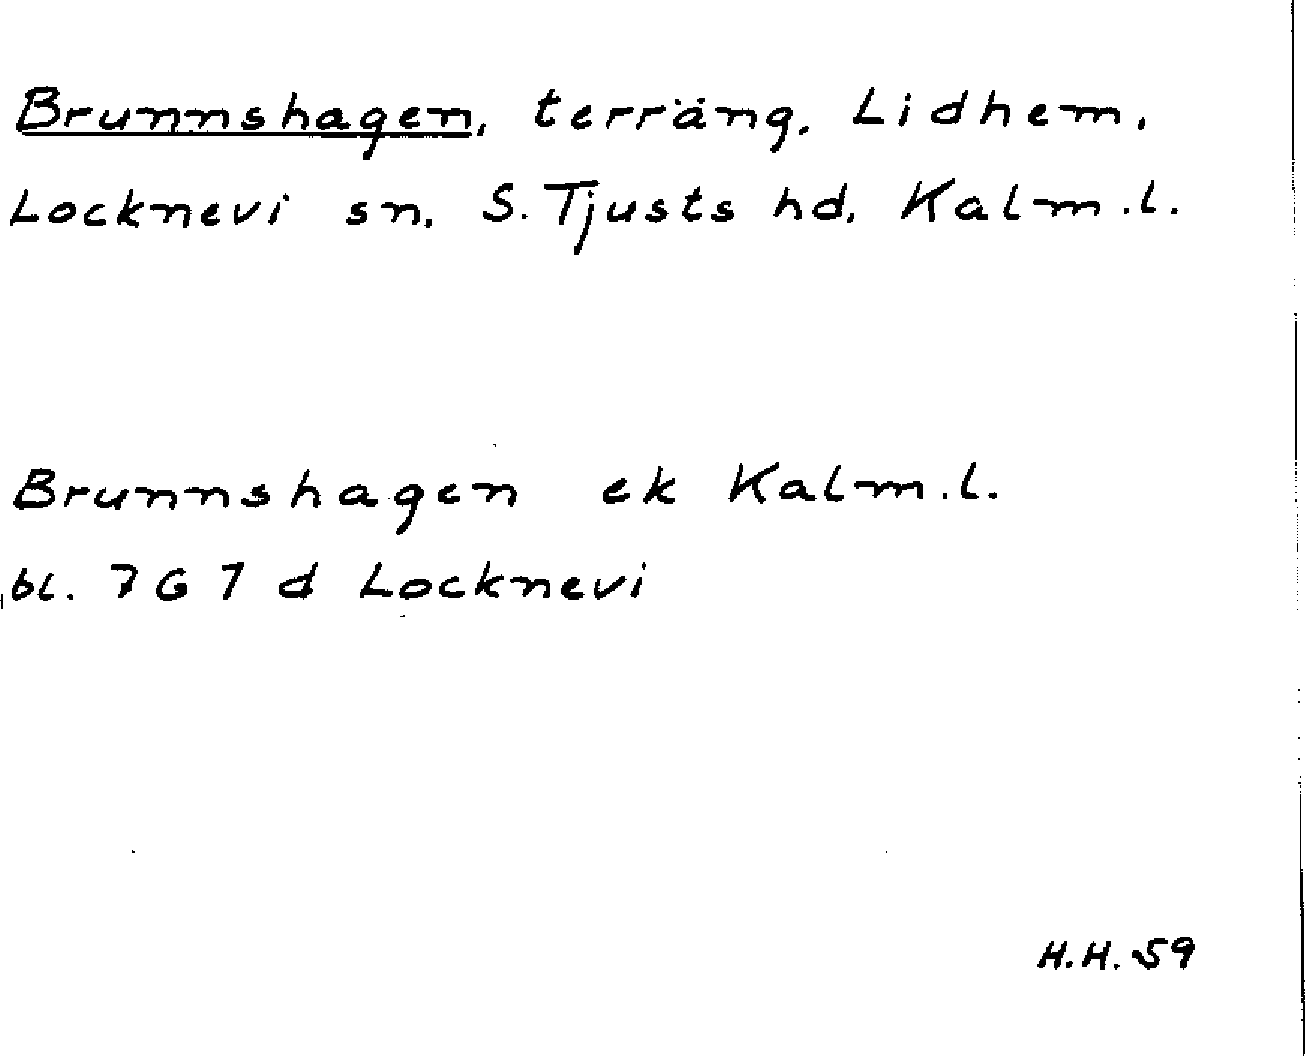 Brunnshagen, terräng, Lidhem,
Locknevi sn, S. Tjusts hd, Kalm.l.
Brunnshagen ek Kalm.l.
bl. 7 G 7 d Locknevi
H.H. 59